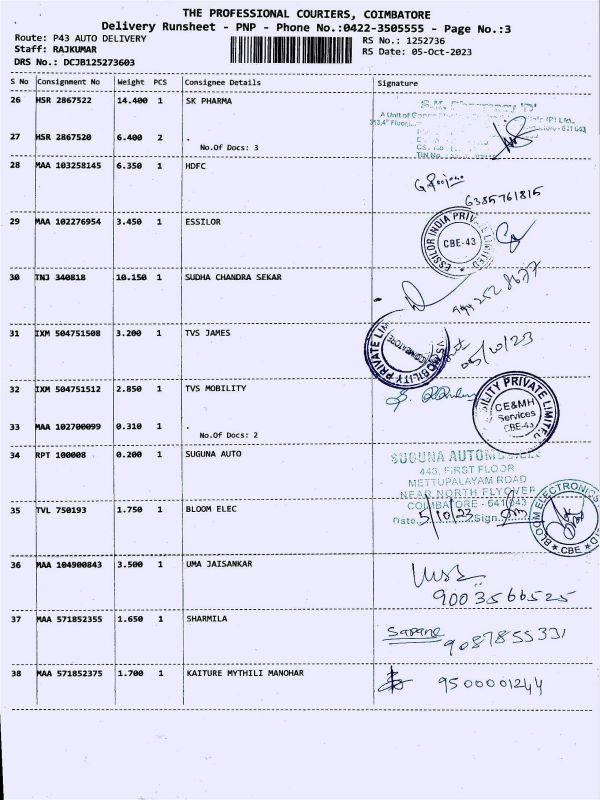 THE PROFESSIONAL COURIERS, COIMBATORE
Delivery Runsheet - PNP - Phone No.:0422-3505555 - Page No.:3
Route: P43 AUTO DELIVERY RS No.: 1252736
Staff: RAJKUMAR RS Date: 05-Oct-2023
DRS No.: DCJB125273603
S No Consignment No Weight PCS Consignee Details Signature
26 HSR 2867522 14.400 1 SK PHARMA
27 HSR 2867520 6.400 2 .
No.Of Docs: 3
28 MAA 103258145 6.350 1 HDFC
6385761815
29 MAA 102276954 3.450 1 ESSILOR
ESSILOR INDIA PRIVATE LIMITED
CBE-43
30 TNJ 340818 10.150 1 SUDHA CHANDRA SEKAR
31 IXM 504751508 3.200 1 TVS JAMES
05/10/23
COIMBATORE
MOBILITY PRIVATE LIM
32 IXM 504751512 2.850 1 TVS MOBILITY
BILITY PRIVATE LIMITED
CE&MH
Services
CBE-43
33 MAA 102700099 0.310 1 .
No.Of Docs: 2
34 RPT 100008 0.200 1 SUGUNA AUTO
SUGUNA AUTOMOBILES
443, FIRST FLOOR
METTUPALAYAM ROAD
NEAR NORTH FLYOVER
COIMBATORE - 641 043
Date 5/10/23 Sign
35 TVL 750193 1.750 1 BLOOM ELEC
BLOOM ELECTRONICS
CBE
36 MAA 104900843 3.500 1 UMA JAISANKAR
9003566525
37 MAA 571852355 1.650 1 SHARMILA
9087855331
38 MAA 571852375 1.700 1 KAITURE MYTHILI MANOHAR
9500001244